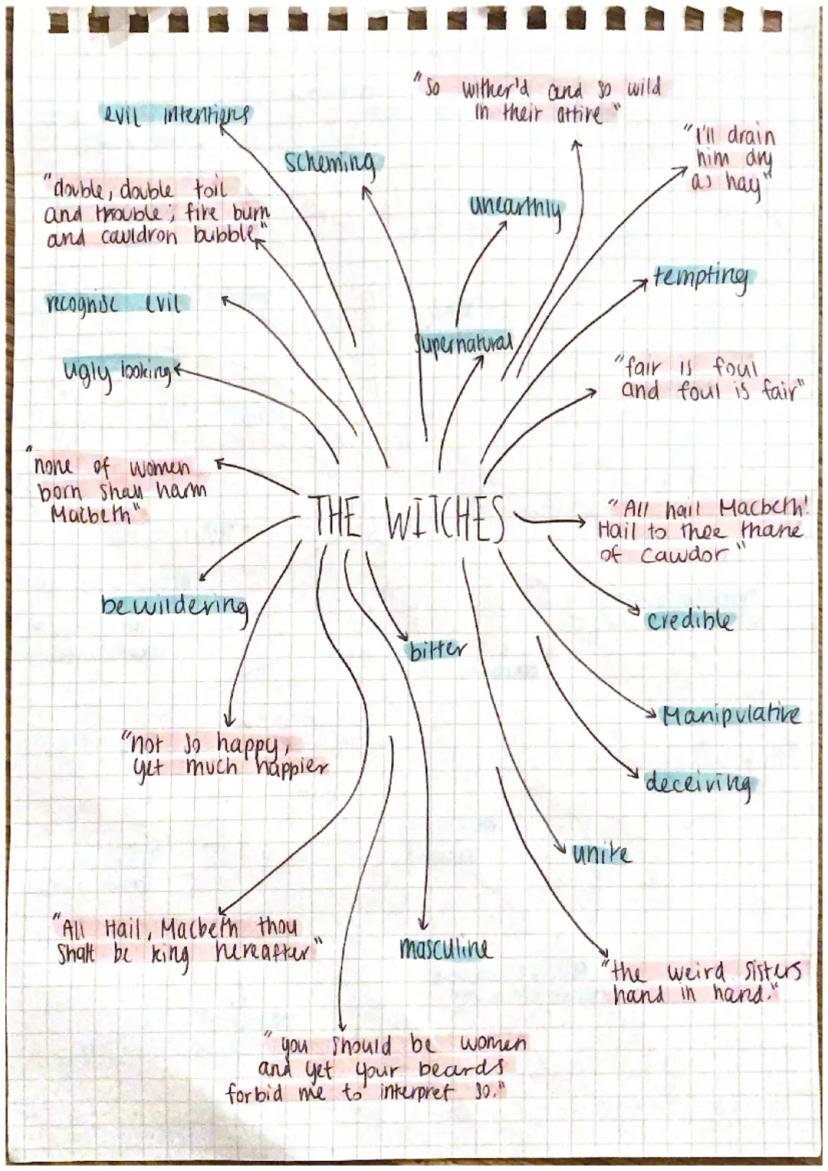 "so wither'd and so wild
in their attire"
evil intentions
"I'll drain
him dry
as hay"
scheming
"double, double toil
and trouble; fire burn
and cauldron bubble"
unearthly
tempting
recognise evil
supernatural
ugly looking
"fair is foul
and foul is fair"
"none of women
born shall harm
Macbeth"
THE WITCHES
"All hail Macbeth!
Hail to thee thane
of cawdor"
bewildering
credible
bitter
Manipulative
"not so happy,
yet much happier
deceiving
unite
"All Hail, Macbeth thou
Shalt be king hereafter"
masculine
"the weird sisters
hand in hand."
"you should be women
and yet your beards
forbid me to interpret so."